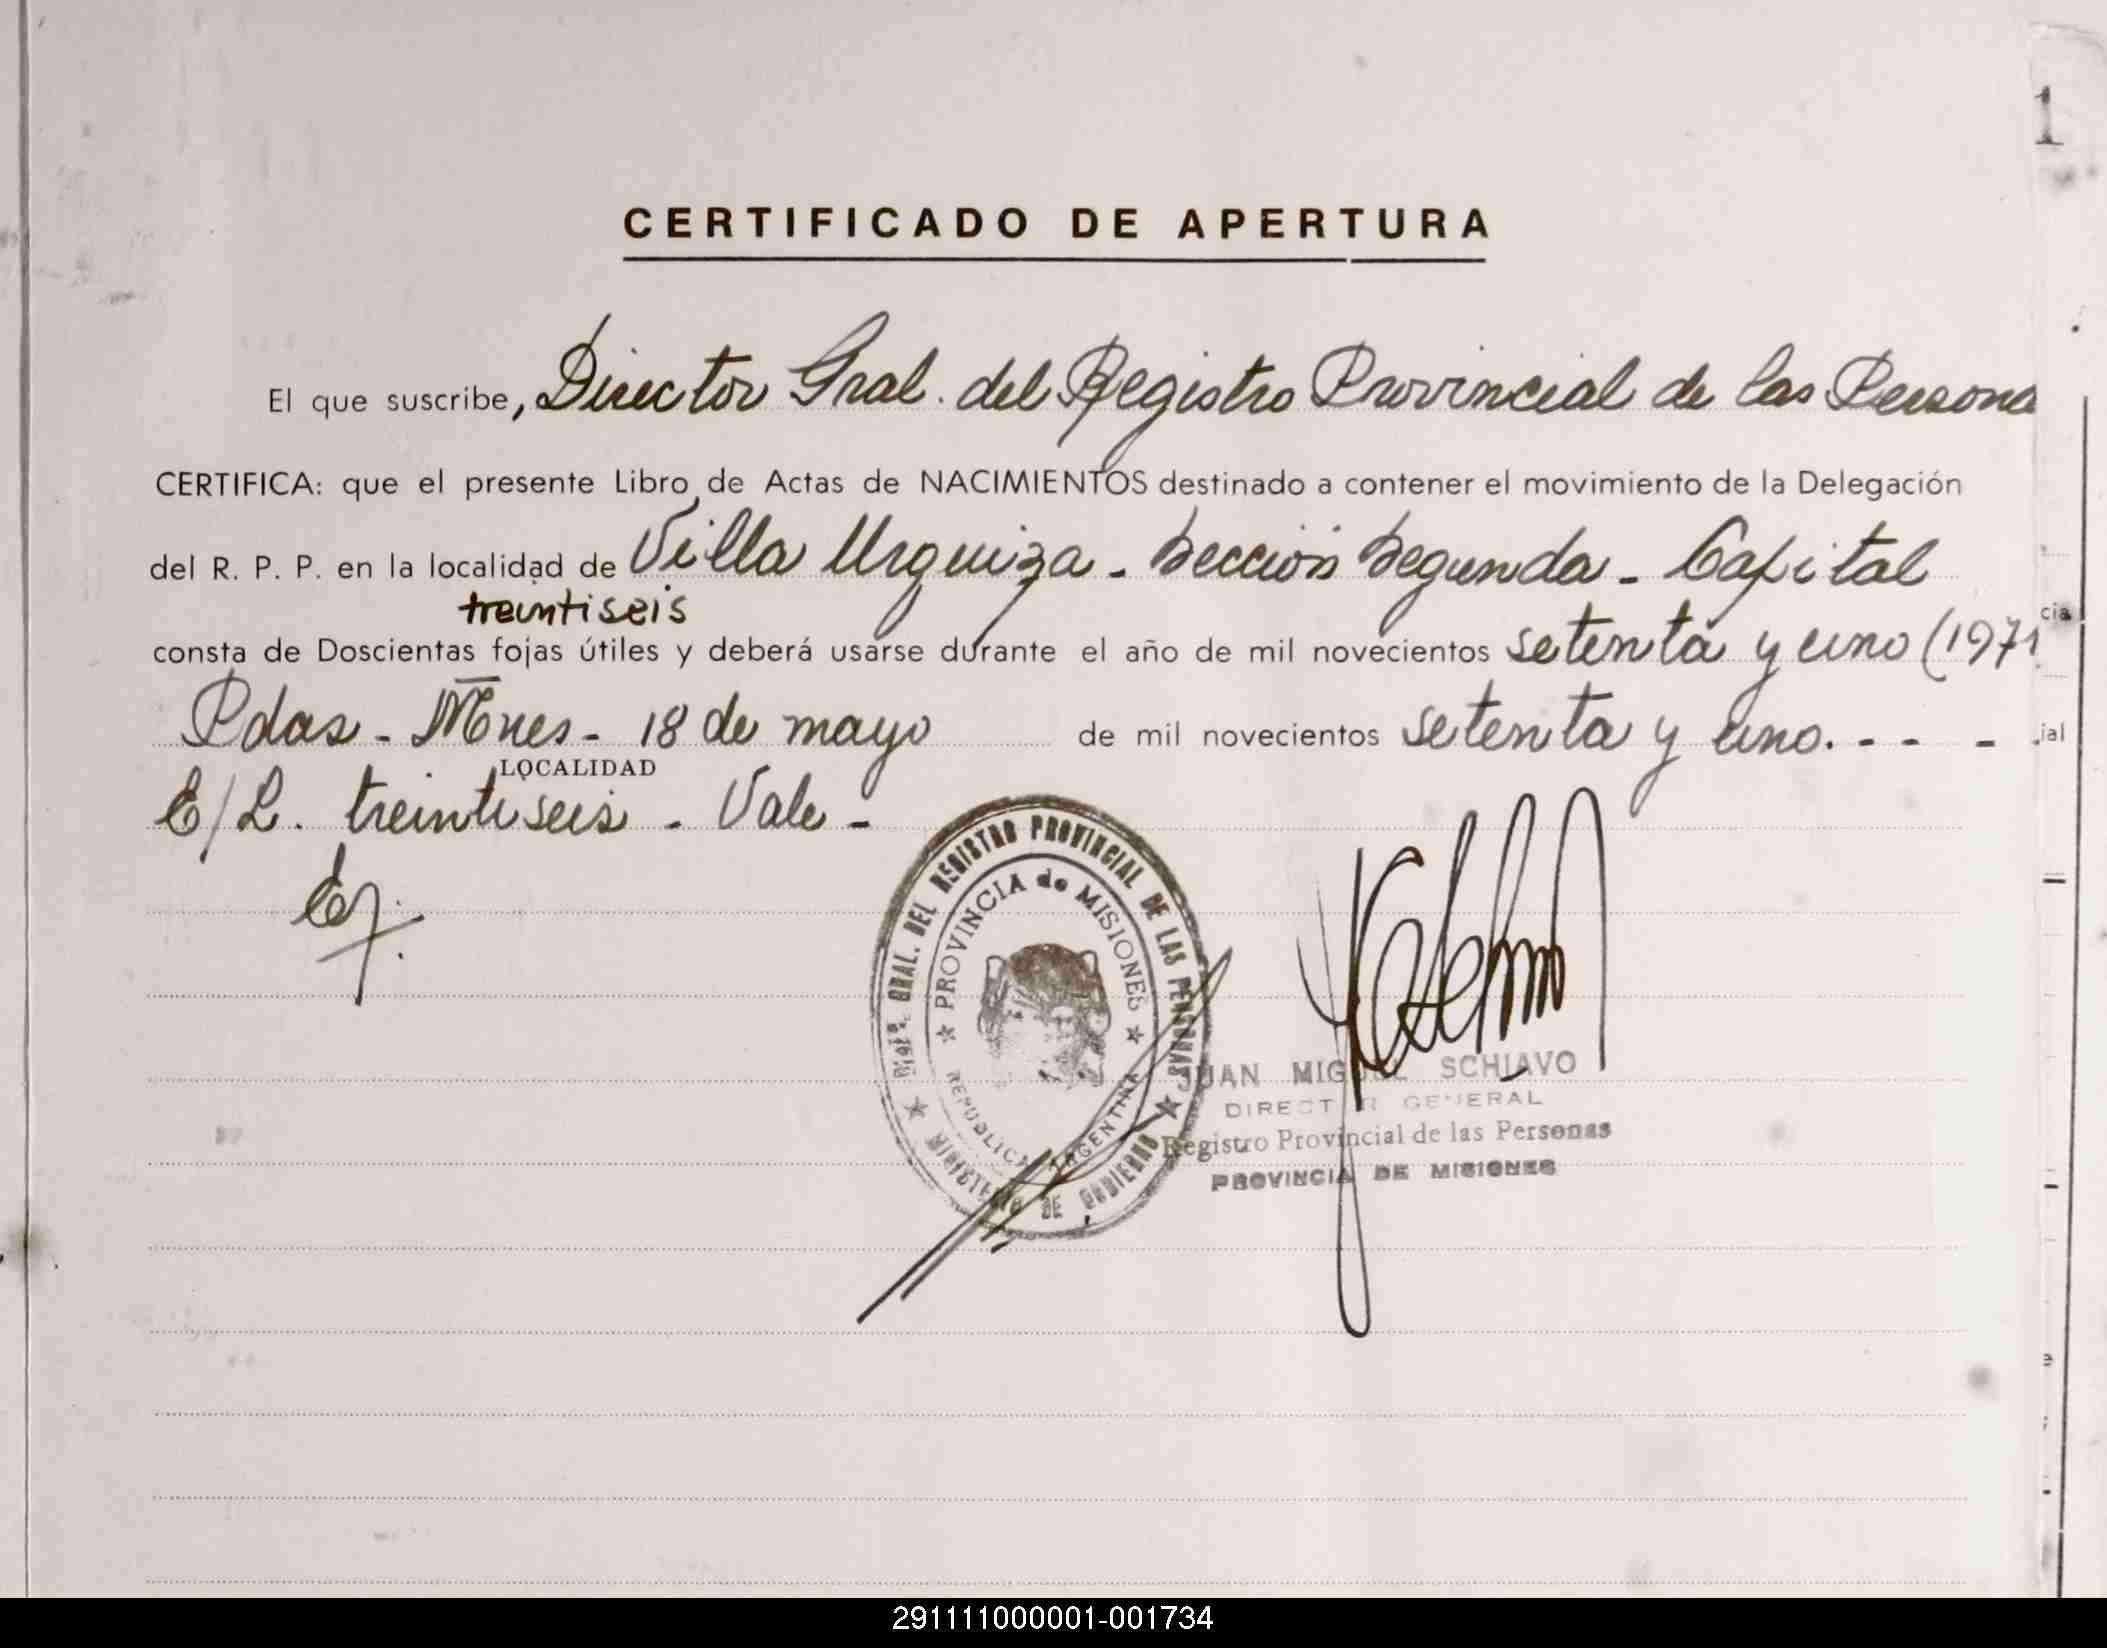 1
CERTIFICADO DE APERTURA
El que suscribe, Director Gral. del Registro Provincial de las Persona
CERTIFICA: que el presente Libro de Actas de NACIMIENTOS destinado a contener el movimiento de la Delegación
del R. P. P. en la localidad de Villa Urquiza - Sección Segunda - Capital
treintiseis
consta de Doscientas fojas útiles y deberá usarse durante el año de mil novecientos setenta y uno (1971
cia
Pdas - Mnes - 18 de mayo de mil novecientos setenta y uno. - - -
ial
LOCALIDAD
E/L. treintiseis - Vale -
DIREC. GRAL. DEL REGISTRO PROVINCIAL DE LAS PERSONAS
PROVINCIA de MISIONES
REPUBLICA ARGENTINA
MINISTERIO DE GOBIERNO
JUAN MIGUEL SCHIAVO
DIRECTOR GENERAL
Registro Provincial de las Personas
PROVINCIA DE MISIONES
291111000001-001734